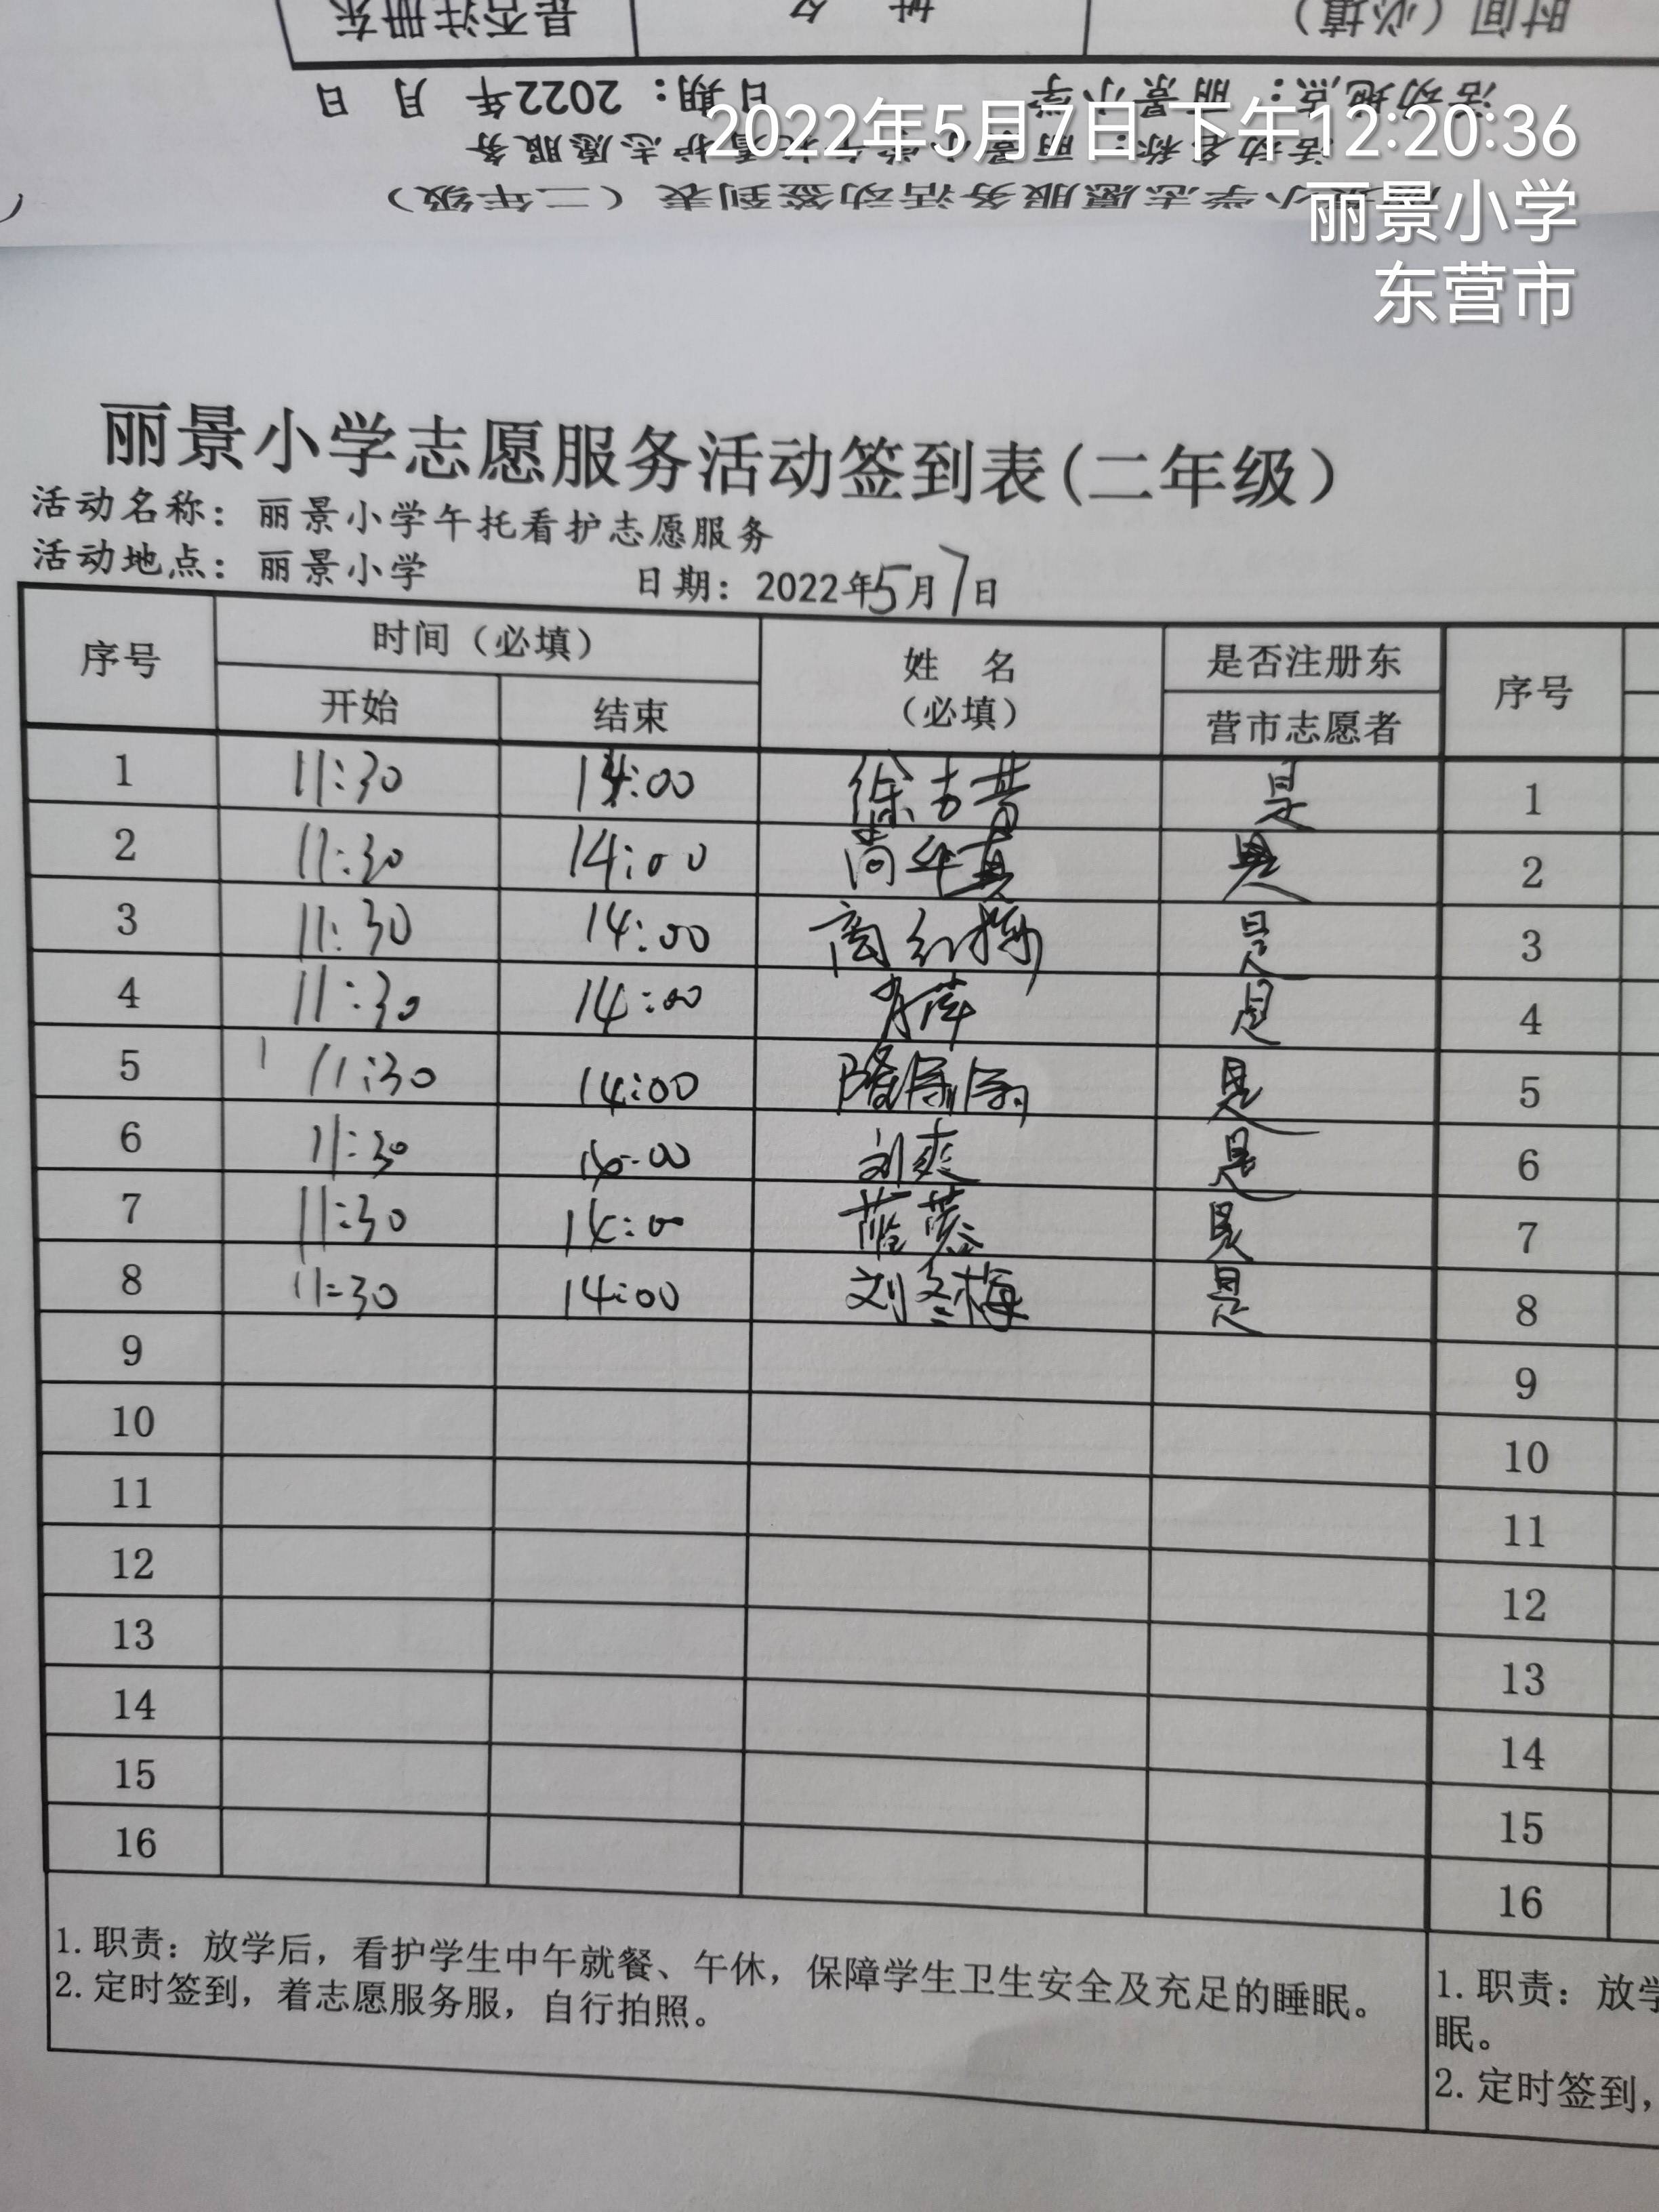 2022年5月7日 下午12:20:36
丽景小学
东营市
时间（必填）
活动地点：丽景小学 日期：2022年 月 日
丽景小学志愿服务活动签到表（二年级）
丽景小学志愿服务活动签到表(二年级）
活动名称：丽景小学午托看护志愿服务
活动地点：丽景小学 日期：2022年5月7日
序号 时间（必填） 姓 名（必填） 是否注册东营市志愿者 序号
开始 结束
1 11:30 14:00 是 1
2 11:30 14:00 是 2
3 11:30 14:00 是 3
4 11:30 14:00 是 4
5 11:30 14:00 是 5
6 11:30 14:00 刘爽 是 6
7 11:30 14:00 是 7
8 11:30 14:00 刘冬梅 是 8
9 9
10 10
11 11
12 12
13 13
14 14
15 15
16 16
1.职责：放学后，看护学生中午就餐、午休，保障学生卫生安全及充足的睡眠。
2.定时签到，着志愿服务服，自行拍照。
1.职责：放学
眠。
2.定时签到，